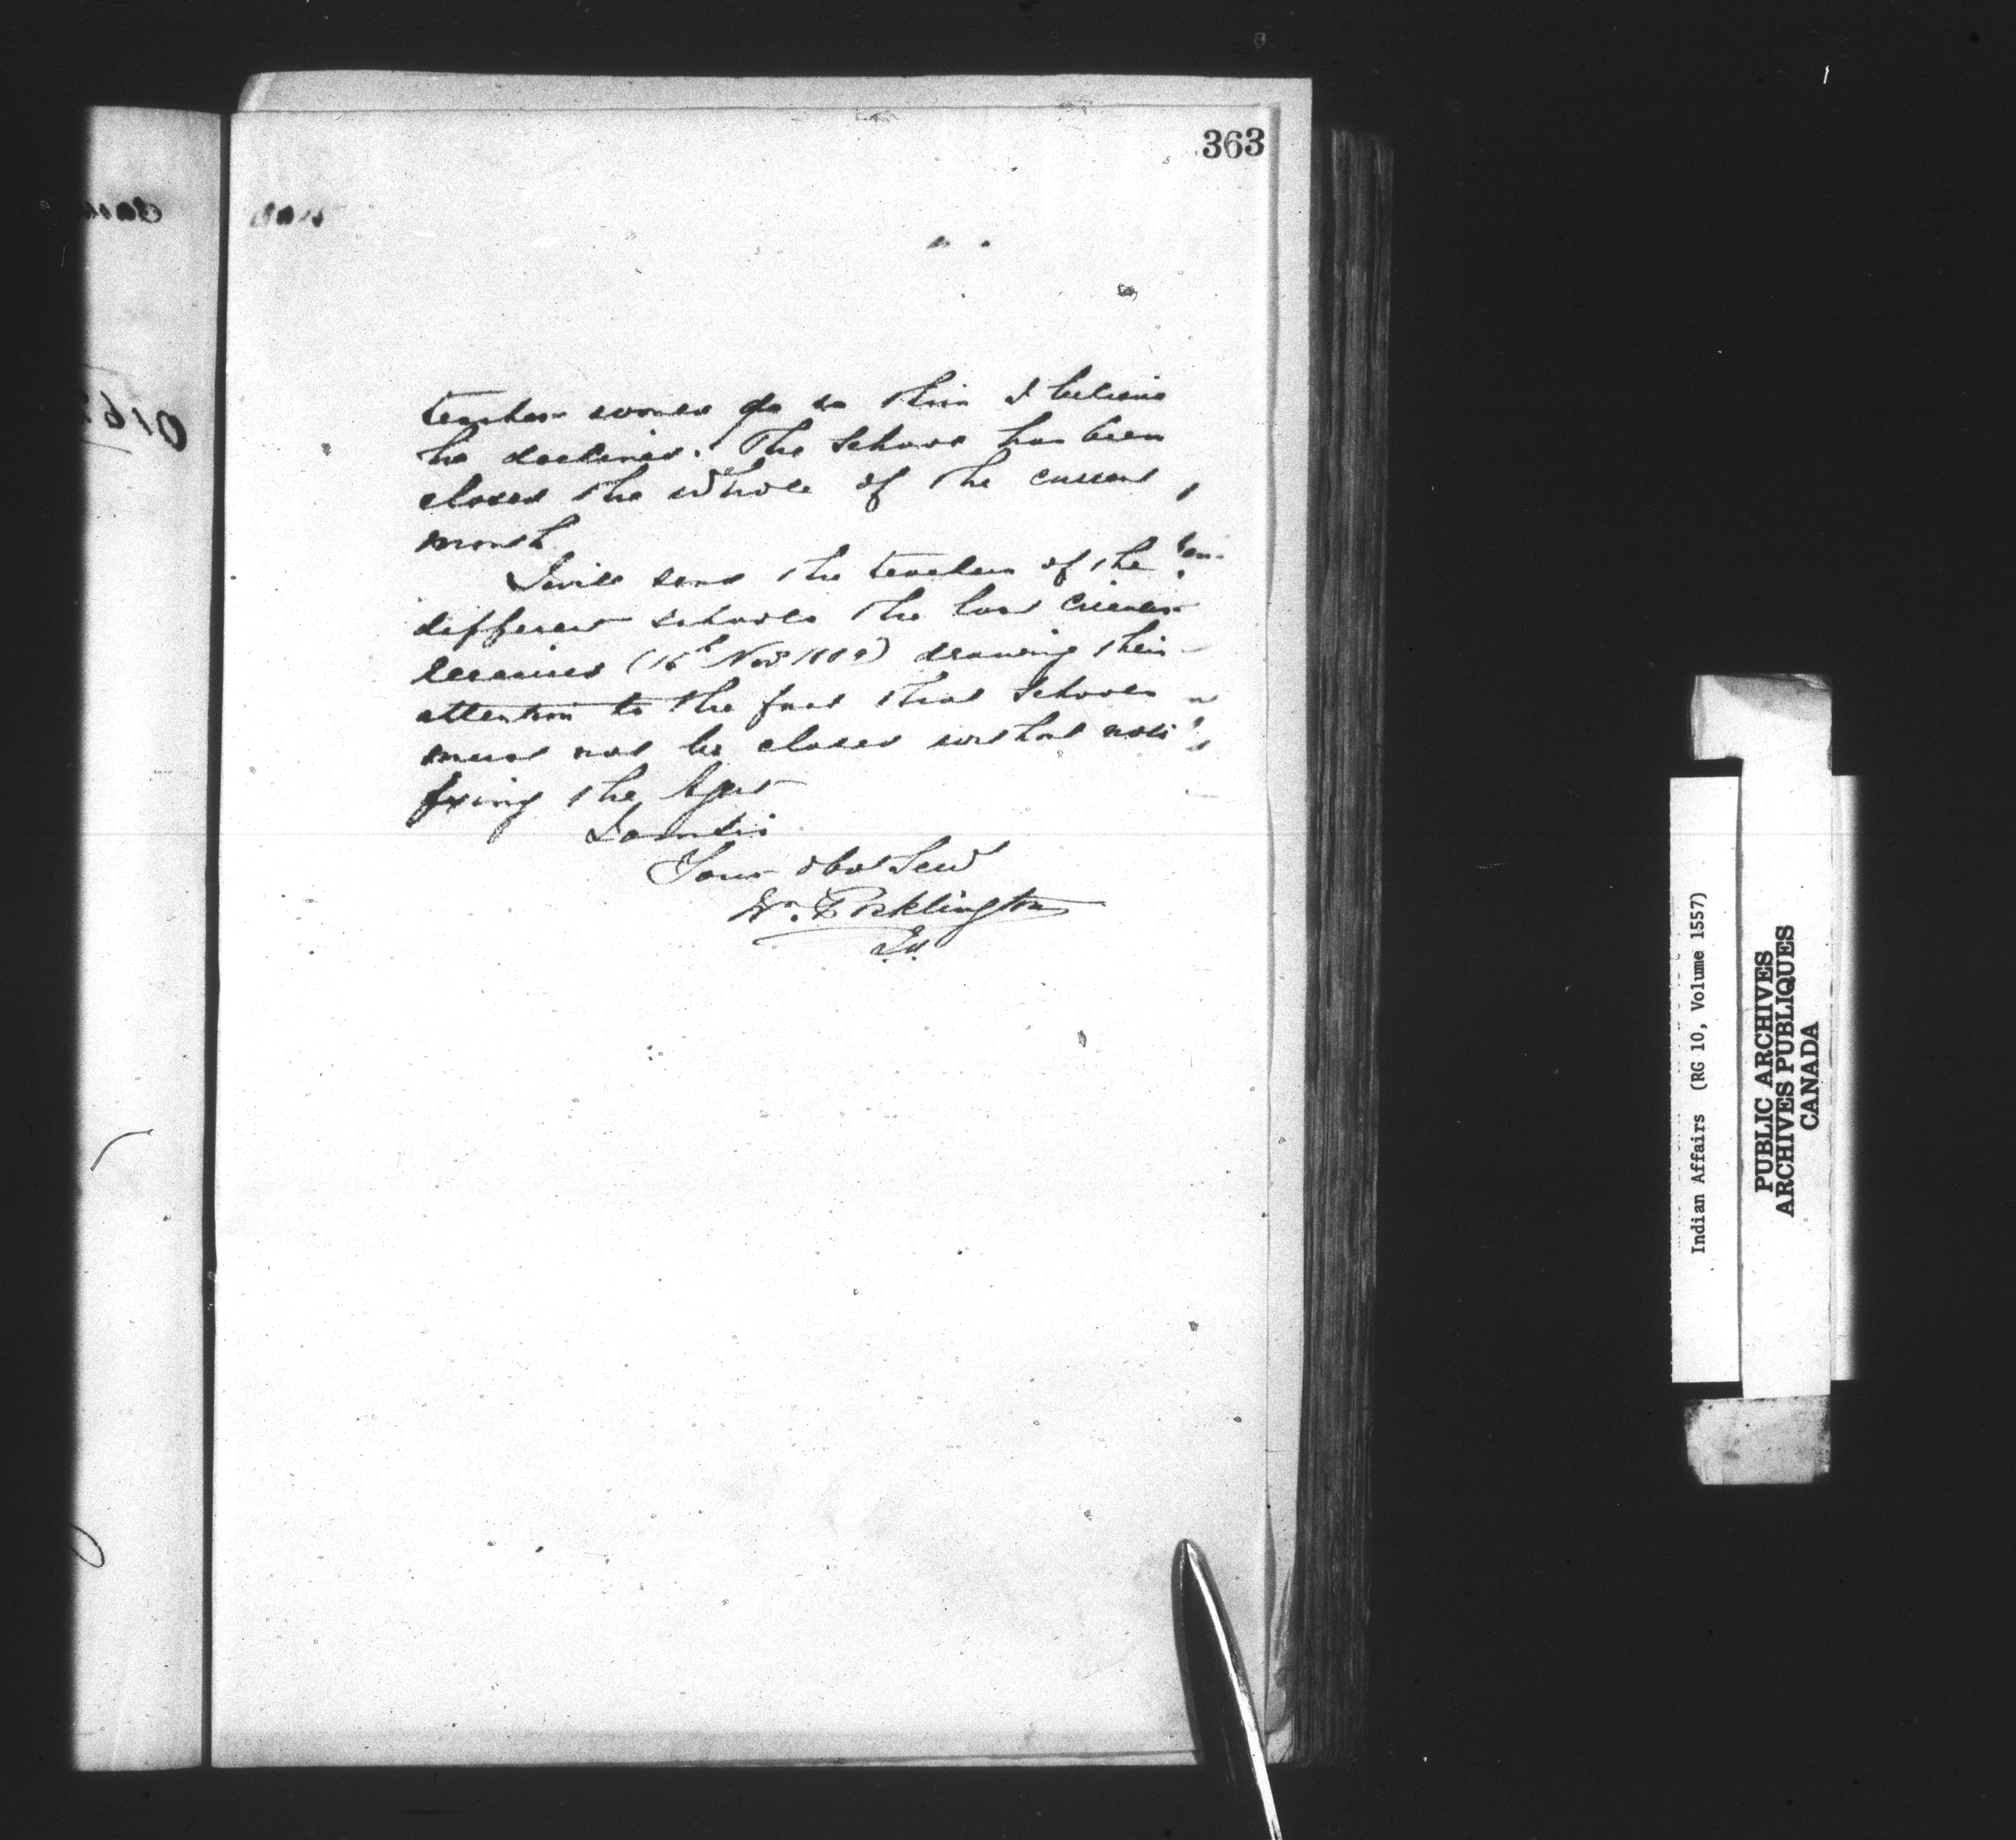 363
teacher would do so this I believe
he declines. The School has been
closed the whole of the current
month
I will send the teachers of the
different schools the last circular
received (16th Nov 1889) drawing their
attention to the fact that Schools
must not be closed without noti
fying the Agent
I am Sir
Your obt Servt
Wm. Pocklington
Indian Affairs (RG 10, Volume 1557)
PUBLIC ARCHIVES
ARCHIVES PUBLIQUES
CANADA